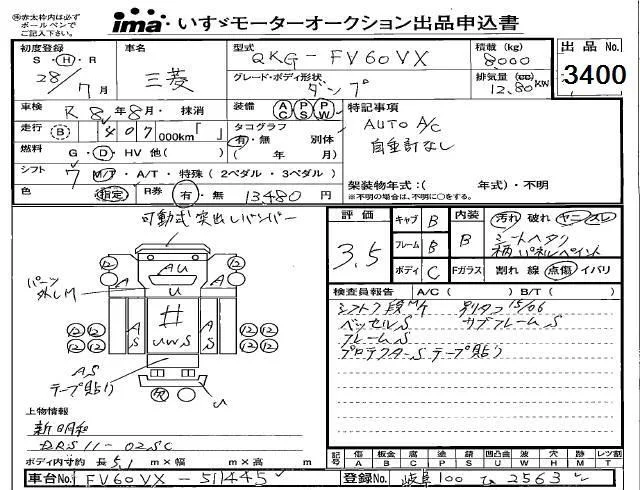 ※赤太枠内は必ず
ボールペンで
ご記入下さい。
ima いすゞモーターオークション出品申込書
初度登録 車名 型式 QKG-FV60VX 積載(kg) 8000 出品 No.
S・H・R 28/7月 三菱 グレード・ボディ形状 ダンプ 排気量(cc) 12.80 KW 3400
車検 R 8年8月・抹消 装備 AC PS PW 特記事項
走行 (B) 407 000km「 」 タコグラフ 有・無 別体 AUTO A/C
燃料 G・D・HV 他( ) ( 年 月) 自重計なし
シフト 7 M/T・A/T・特殊(2ペダル・3ペダル)
色 指定 R券 有・無 13,480 円 架装物年式:( 年式)・不明
※不明の場合は、不明に○をする。
可動式突出しバンパー
評価 3.5 キャブ B 内装 B 汚れ 破れ ヤニ スレ
フレーム B シートヘタリ
柄パネルペイント
ボディ C Fガラス 割れ 線 点傷 イバリ
検査員報告 A/C( ) B/T( )
シフト7段M/T 別タコ 15/06
ベッセルS サブフレームS
フレームS
プロテクターS テープ貼り
パーツ
外しM
AU
U
12 12
A A
#
UWS
S S
12 12 12 12
12 12 12 12
AS
テープ貼り
U
上物情報
新明和
DRS11-02SC
ボディ内寸約 長 5.1 m×幅 m×高 m
記号 傷 A 板金 B 腐 C 塗 P 錆 S 凹凸曲 U 波 W 穴 H 跡 M レツ割 T
車台No. FV60VX-511445 登録No. 岐阜 100 ひ 2563